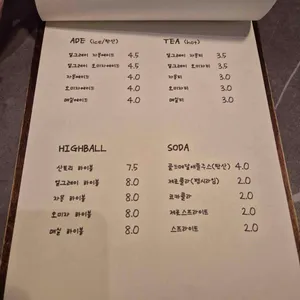 ADE (ice/탄산)
얼그레이 자몽에이드 4.5
얼그레이 오미자에이드 4.5
자몽에이드 4.0
오미자에이드 4.0
매실에이드 4.0
TEA (hot)
얼그레이 자몽티 3.5
얼그레이 오미자티 3.5
자몽티 3.0
오미자티 3.0
매실티 3.0
HIGHBALL
산토리 하이볼 7.5
얼그레이 하이볼 8.0
자몽 하이볼 8.0
오미자 하이볼 8.0
매실 하이볼 8.0
SODA
골드메달애플쥬스(탄산) 4.0
제로콜라(펩시라임) 2.0
코카콜라 2.0
제로스프라이트 2.0
스프라이트 2.0